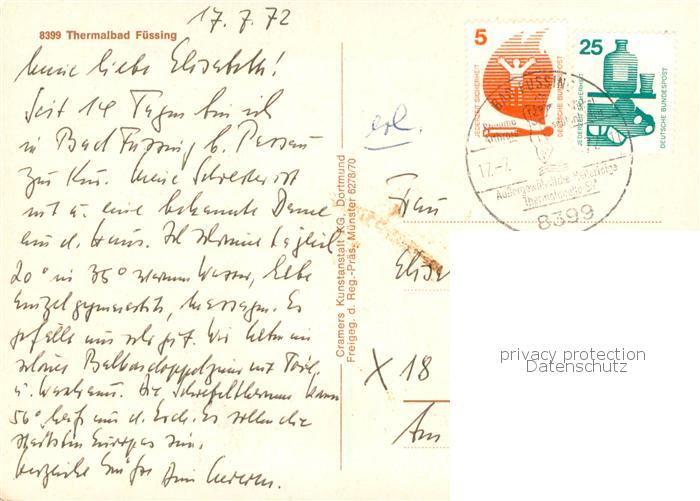 17. 7. 72
8399 Thermalbad Füssing
Meine liebe Elisabeth!
Seit 14 Tagen bin ich
in Bad Füssing b. Passau
zur Kur. Meine Schwester ist
mit u. eine bekannte Dame
aus d. Haus. Ich schwimme täglich
20° in 36° warmem Wasser,
Einzelgymnastik, Massagen. Es
gefällt uns sehr gut. Wir haben ein
schönes Balkondoppelzimmer mit
u. Die Schwefeltherme kam
56° heiß aus d. Erde. Es sollen die
stärksten Europas sein.
herzliche Grüße
Cramers Kunstanstalt KG, Dortmund
Freigeg. d. Reg.-Präs. Münster 6278/70
erl.
5
JEDERZEIT SICHERHEIT
DEUTSCHE BUNDESPOST
25
JEDERZEIT SICHERHEIT
DEUTSCHE BUNDESPOST
17.-7.
Außergewöhnliche Heilerfolge
Thermalquelle 56°
8399
Frau
Elisa
X 18
Am
privacy protection
Datenschutz